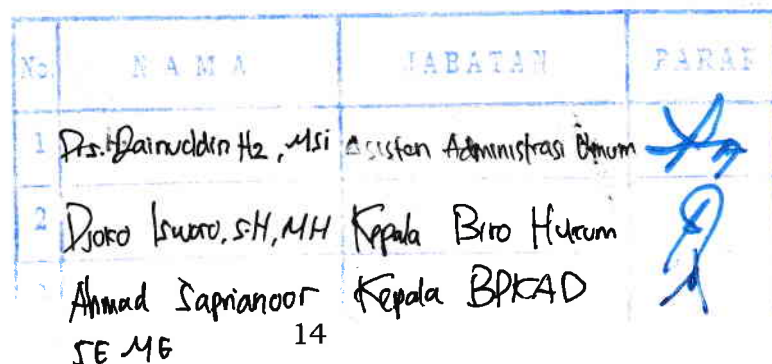 No. NAMA JABATAN PARAF
1 Drs. H. Zainuddin Hz, MSi Asisten Administrasi Umum
2 Djoko Isworo, S.H, MH Kepala Biro Hukum
Ahmad Saprianoor Kepala BPKAD
SE ME
14